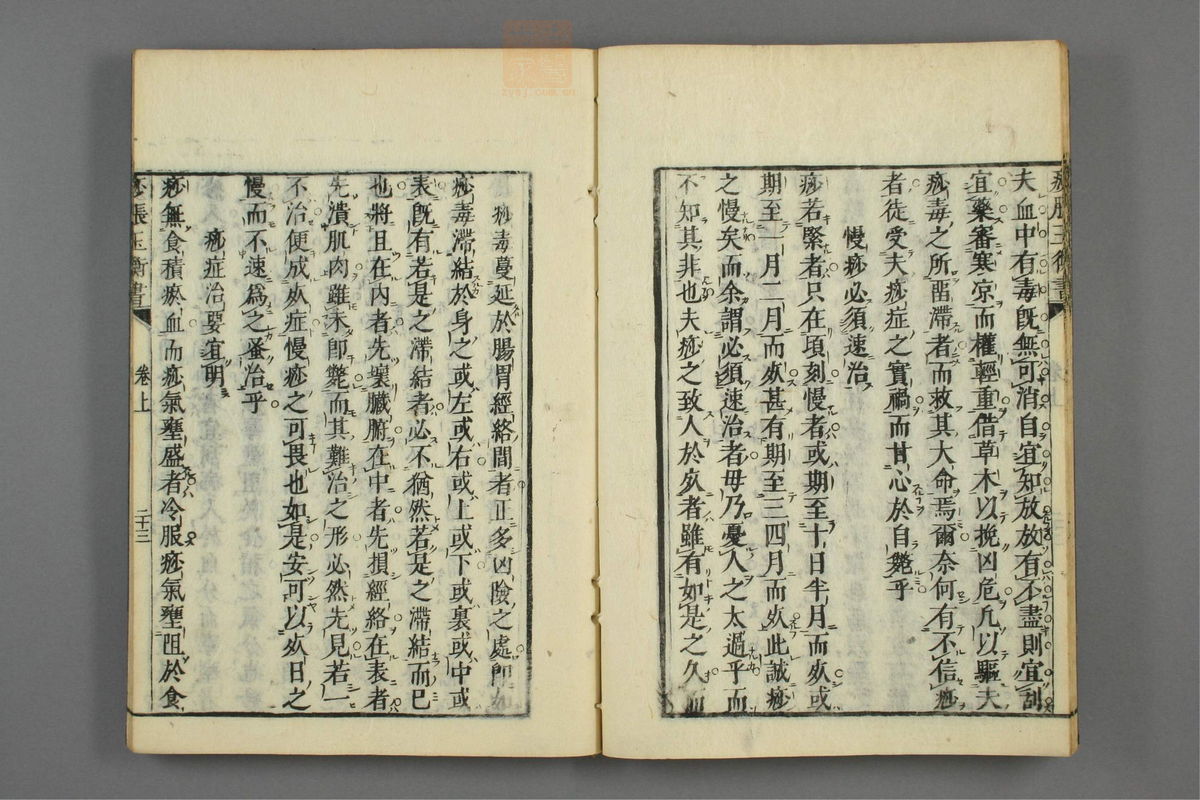 痧脹玉衡書
夫血中有毒既無可消自宜知放放有不盡則宜刮
宜藥審寒凉而權輕重借草木以挽凶危凢以驅夫
痧毒之所畱滯者而救其大命焉爾奈何有不信痧
者徒受夫痧症之實禍而甘心於自斃乎
慢痧必須速治
痧若緊者只在頃刻慢者或期至十日半月而死或
期至一月二月而死甚有期至三四月而死此誠痧
之慢矣而余謂必須速治者毋乃憂人之太過乎而
不知其非也夫痧之致人於死者雖有如是之久而
痧毒蔓延於腸胃經絡間者正多凶險之處即如
痧毒滯結於身之或左或右或上或下或裏或中或
表既有若是之滯結者必不猶然若是之滯結而已
也將且在内者先壞臟腑在中者先損經絡在表者
先潰肌肉雖未即斃而其難治之形必然先見若一
不治便成死症慢痧之可畏也如是安可以死日之
慢而不速爲之蚤治乎
痧症治要宜明
痧無食積瘀血而痧氣壅盛者冷服痧氣壅阻於食
痧脹玉衡書
卷上
二十三
zysj.com.cn